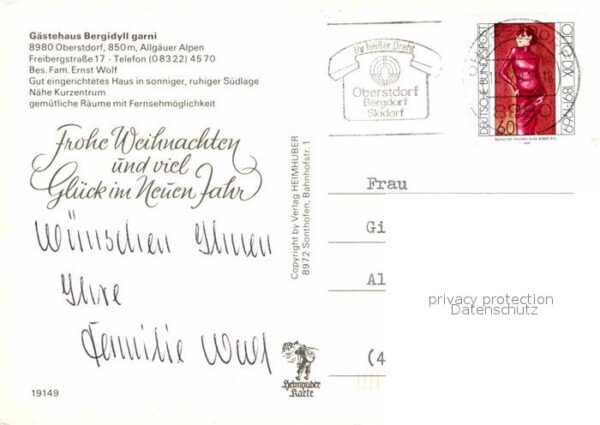 Gästehaus Bergidyll garni
8980 Oberstdorf, 850m, Allgäuer Alpen
Freibergstraße 17 - Telefon (08322) 4570
Bes. Fam. Ernst Wolf
Gut eingerichtetes Haus in sonniger, ruhiger Südlage
Nähe Kurzentrum
gemütliche Räume mit Fernsehmöglichkeit
Frohe Weihnachten
und viel
Glück im Neuen Jahr
Wünschen Ihnen
Ihre
Familie Wolf
19149
Copyright by Verlag HEIMHUBER
8972 Sonthofen, Bahnhofstr. 1
Heimhuber
Karte
Ihr heißer Draht
Oberstdorf
Bergdorf
Skidorf
8980
DEUTSCHE BUNDESPOST
60
OTTO DIX 1891-1969
Frau
Gi
Al
(4
privacy protection
Datenschutz